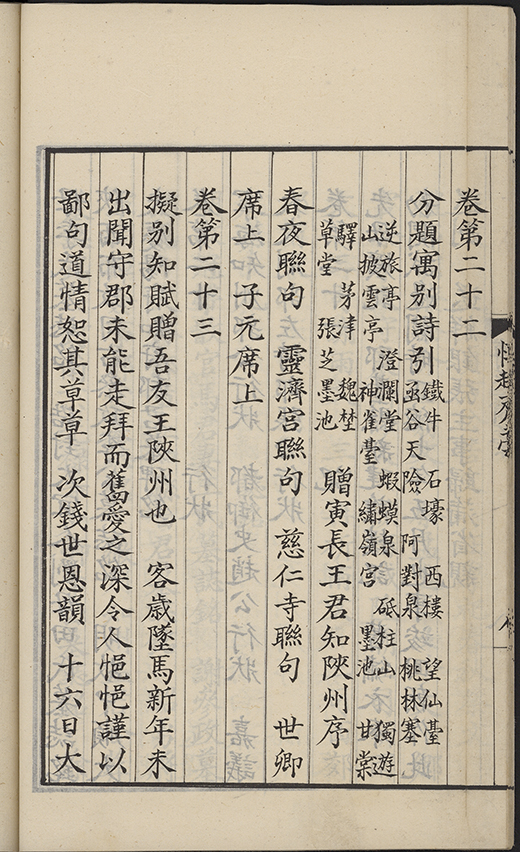 卷第二十二
分題寓別詩引 鐵牛 石壕 西樓 望仙臺
函谷天險 阿對泉 桃林塞
逆旅亭 澄瀾堂 蝦蟆泉 砥柱山 獨遊
山披雲亭 神雀臺 繡嶺宮 墨池 甘棠
驛 茅津 魏埜
草堂 張芝墨池 贈寅長王君知陝州序
春夜聯句 靈濟宮聯句 慈仁寺聯句 世卿
席上 子元席上
卷第二十三
擬别知賦贈吾友王陝州也 客歲墜馬新年未
出聞守郡未能走拜而舊愛之深令人悒悒謹以
鄙句道情恕其草草 次錢世恩韻 十六日大